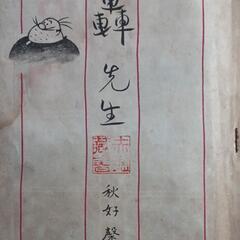 轟先生
秋好馨